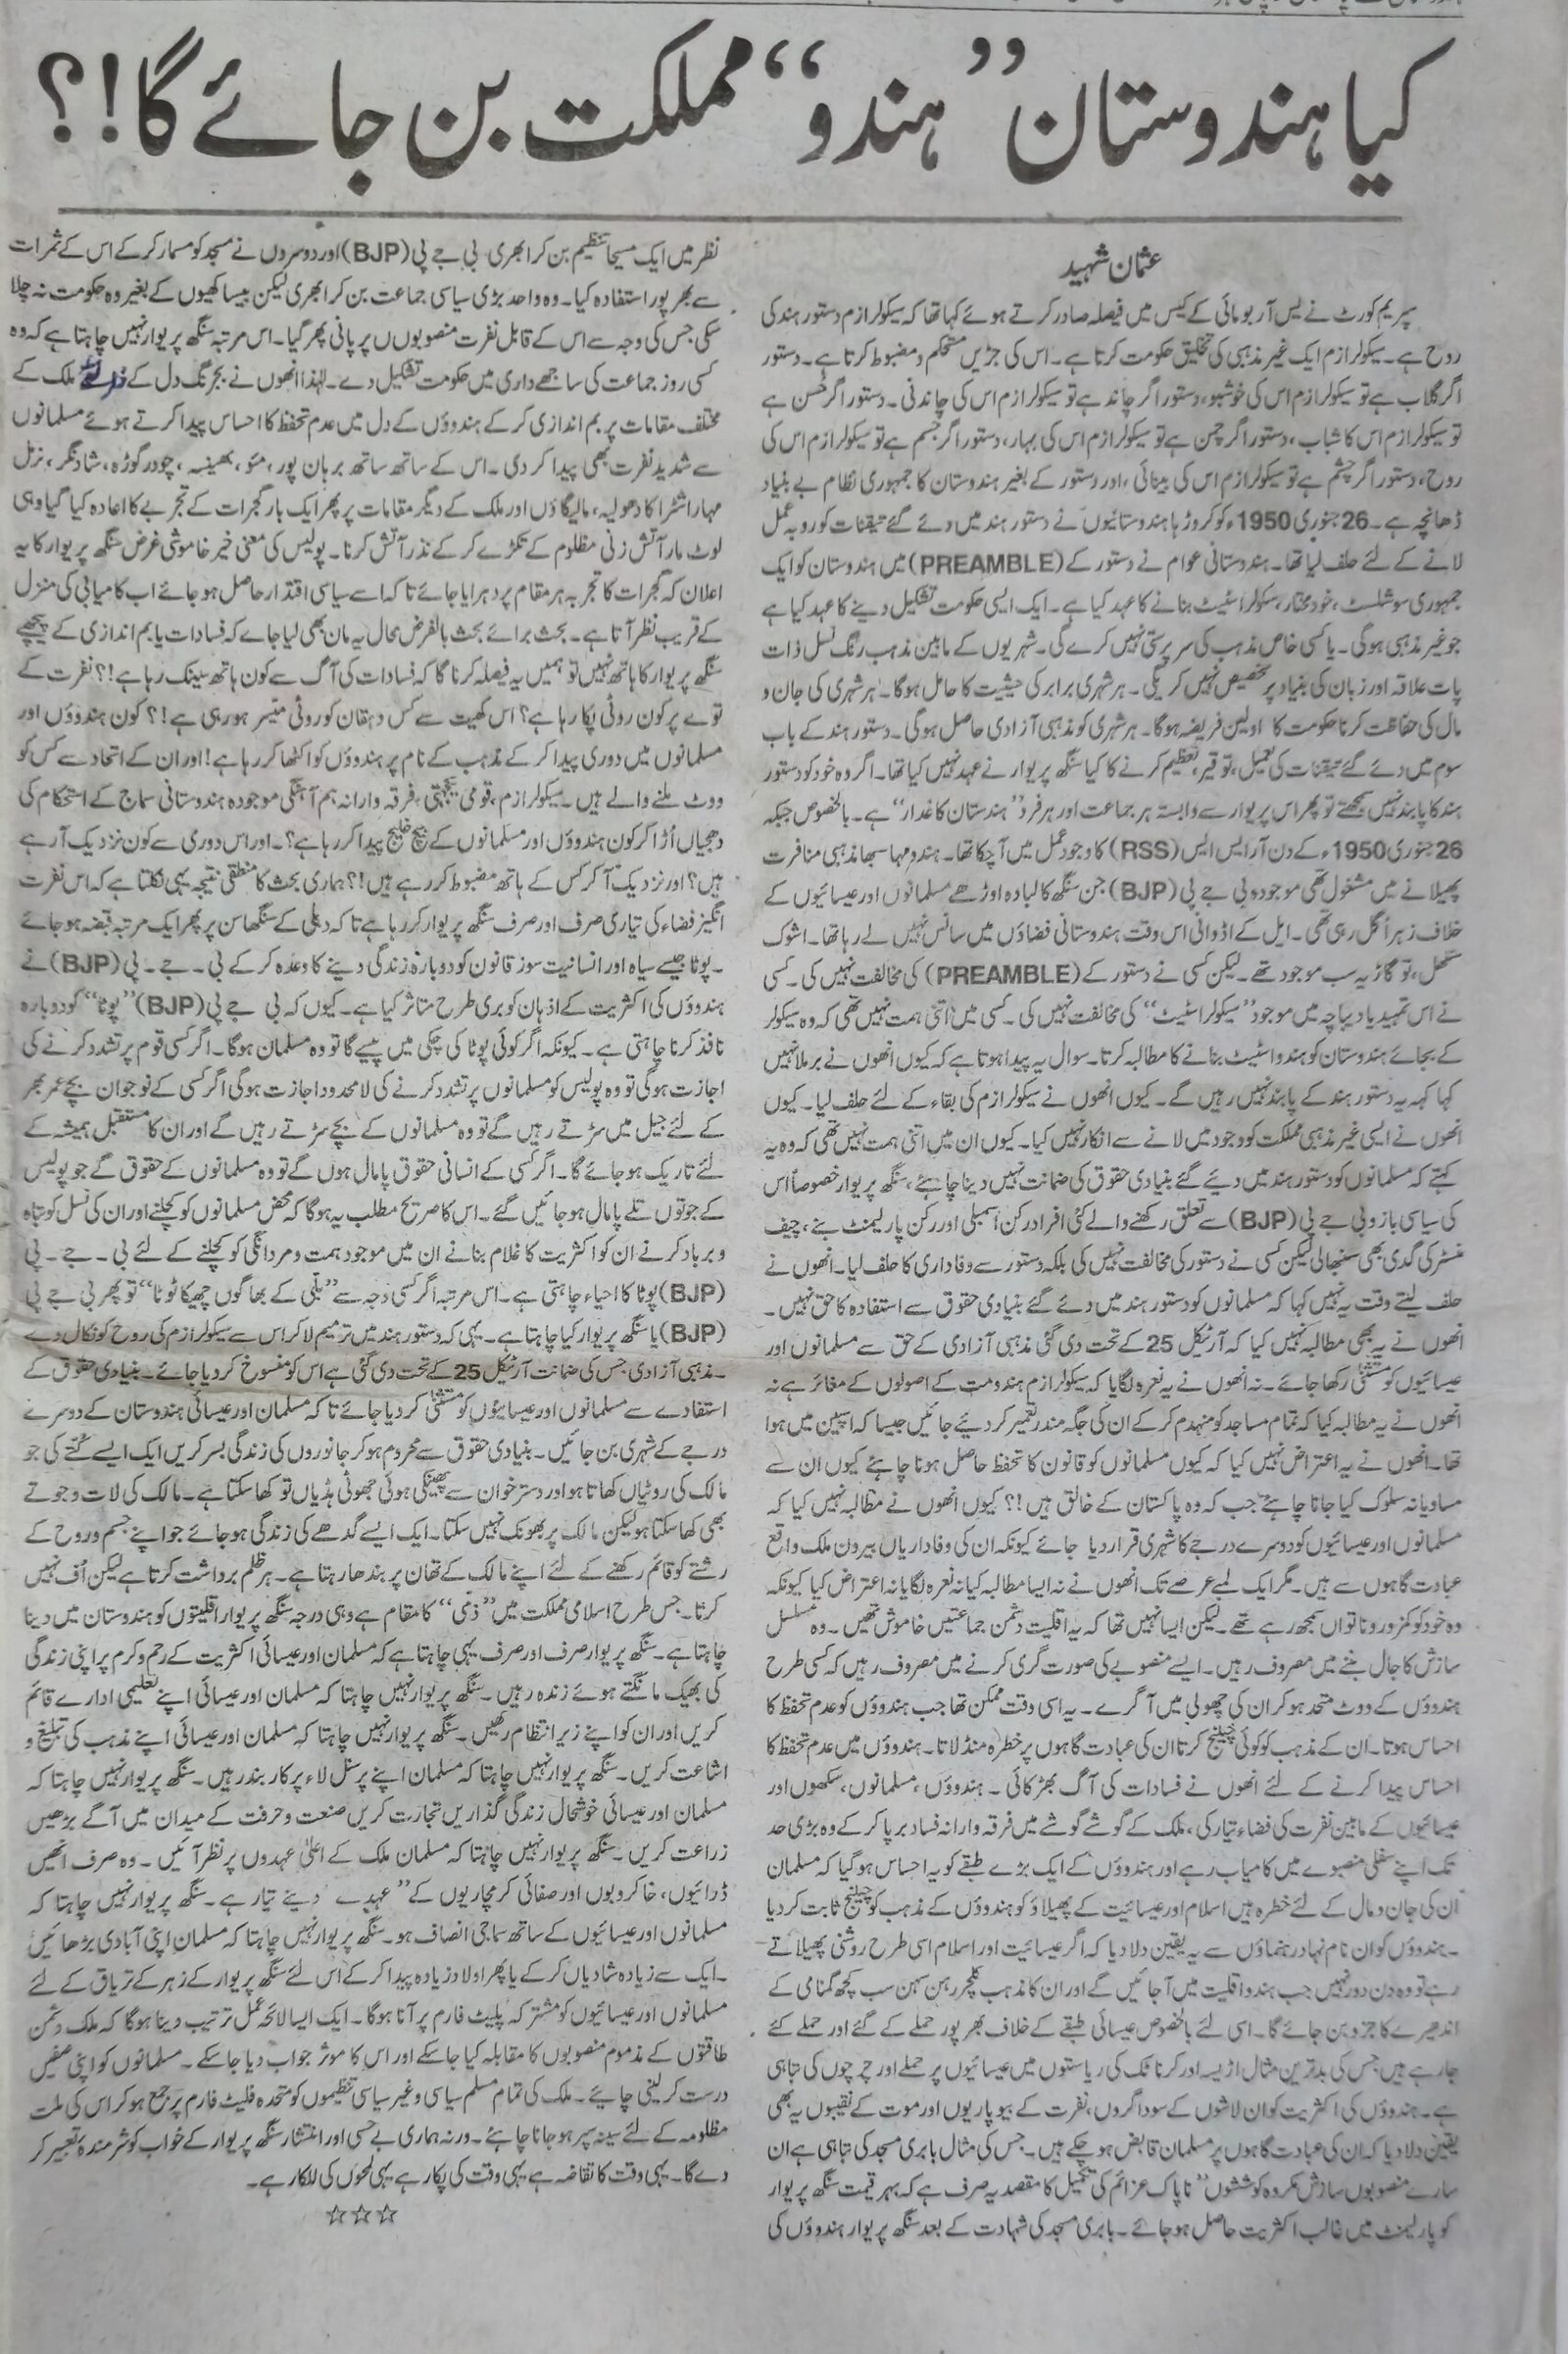 کیا ہندوستان ’’ہندو‘‘ مملکت بن جائے گا!؟
عثمان شہید
سپریم کورٹ نے یس آر بومائی کے کیس میں فیصلہ صادر کرتے ہوئے کہا تھا کہ سیکولرازم دستور ہند کی
روح ہے۔ سیکولرازم ایک غیر مذہبی کی تخلیق حکومت کرتا ہے۔ اس کی جڑیں مستحکم و مضبوط کرتا ہے۔ دستور
اگر گلاب ہے تو سیکولرازم اس کی خوشبو، دستور اگر چاند ہے تو سیکولرازم اس کی چاندنی۔ دستور اگر حُسن ہے
تو سیکولرازم اس کا شباب، دستور اگر چمن ہے تو سیکولرازم اس کی بہار، دستور اگر جسم ہے تو سیکولرازم اس کی
روح، دستور اگر چشم ہے تو سیکولرازم اس کی بینائی، اور دستور کے بغیر ہندوستان کا جمہوری نظام بے بنیاد
ڈھانچہ ہے۔ 26 جنوری 1950ء کو کروڑہا ہندوستانیوں نے دستور ہند میں دئے گئے تیقنات کو روبہ عمل
لانے کے لئے حلف لیا تھا۔ ہندوستانی عوام نے دستور کے (PREAMBLE) میں ہندوستان کو ایک
جمہوری سوشلسٹ، خودمختار، سکولر اسٹیٹ بنانے کا عہد کیا ہے۔ ایک ایسی حکومت تشکیل دینے کا عہد کیا ہے
جو غیر مذہبی ہوگی۔ یا کسی خاص مذہب کی سرپرستی نہیں کرے گی۔ شہریوں کے مابین مذہب رنگ نسل ذات
پات علاقہ اور زبان کی بنیاد پر تخصیص نہیں کریگی۔ ہر شہری برابر کی حیثیت کا حامل ہوگا۔ ہر شہری کی جان و
مال کی حفاظت کرنا حکومت کا اولین فریضہ ہوگا۔ ہر شہری کو مذہبی آزادی حاصل ہوگی۔ دستور ہند کے باب
سوم میں دئے گئے تیقنات کی تعمیل، توقیر، تعظیم کرنے کا کیا سنگھ پریوار نے عہد نہیں کیا تھا۔ اگر وہ خود کو دستور
ہند کا پابند نہیں سمجھتے تو پھر اس پریوار سے وابستہ ہر جماعت اور ہر فرد ’’ہندستان کا غدار‘‘ ہے۔ بالخصوص جبکہ
26 جنوری 1950ء کے دن آر ایس ایس (RSS) کا وجود عمل میں آچکا تھا۔ ہندو مہا سبھا مذہبی منافرت
پھیلانے میں مشغول تھی موجودہ بی جے پی (BJP) جن سنگھ کا لبادہ اوڑھے مسلمانوں اور عیسائیوں کے
خلاف زہر اُگل رہی تھی۔ ایل کے اڈوانی اس وقت ہندوستانی فضاؤں میں سانس نہیں لے رہا تھا۔ اشوک
سنگھل، توگاڑیہ سب موجود تھے۔ لیکن کسی نے دستور کے (PREAMBLE) کی مخالفت نہیں کی۔ کسی
نے اس تمہید یا دیباچہ میں موجود ’’سیکولر اسٹیٹ‘‘ کی مخالفت نہیں کی۔ کسی میں اتنی ہمت نہیں تھی کہ وہ سیکولر
کے بجائے ہندوستان کو ہندو اسٹیٹ بنانے کا مطالبہ کرتا۔ سوال یہ پیدا ہوتا ہے کہ کیوں انھوں نے برملا نہیں
کہا کہ یہ دستور ہند کے پابند نہیں رہیں گے۔ کیوں انھوں نے سیکولرازم کی بقاء کے لئے حلف لیا۔ کیوں
انھوں نے ایسی غیر مذہبی مملکت کو وجود میں لانے سے انکار نہیں کیا۔ کیوں ان میں اتنی ہمت نہیں تھی کہ وہ یہ
کہتے کہ مسلمانوں کو دستور ہند میں دیئے گئے بنیادی حقوق کی ضمانت نہیں دینا چاہئے، سنگھ پریوار خصوصاً اس
کی سیاسی بازو بی جے پی (BJP) سے تعلق رکھنے والے کئی افراد رکن اسمبلی اور رکن پارلیمنٹ بنے، چیف
منسٹر کی گدی بھی سنبھالی لیکن کسی نے دستور کی مخالفت نہیں کی بلکہ دستور سے وفاداری کا حلف لیا۔ انھوں نے
حلف لیتے وقت یہ نہیں کہا کہ مسلمانوں کو دستور ہند میں دئے گئے بنیادی حقوق سے استفادہ کا حق نہیں۔
انھوں نے یہ بھی مطالبہ نہیں کیا کہ آرٹیکل 25 کے تحت دی گئی مذہبی آزادی کے حق سے مسلمانوں اور
عیسائیوں کو مستثنیٰ رکھا جائے۔ نہ انھوں نے یہ نعرہ لگایا کہ سیکولرازم ہندومت کے اصولوں کے مغائر ہے نہ
انھوں نے یہ مطالبہ کیا کہ تمام مساجد کو منہدم کرکے ان کی جگہ مندر تعمیر کردئیے جائیں جیسا کہ اسپین میں ہوا
تھا۔ انھوں نے یہ اعتراض نہیں کیا کہ کیوں مسلمانوں کو قانون کا تحفظ حاصل ہونا چاہئے کیوں ان سے
مساویانہ سلوک کیا جانا چاہئے جب کہ وہ پاکستان کے خالق ہیں!؟ کیوں انھوں نے مطالبہ نہیں کیا کہ
مسلمانوں اور عیسائیوں کو دوسرے درجے کا شہری قرار دیا جائے کیونکہ ان کی وفاداریاں بیرون ملک واقع
عبادت گاہوں سے ہیں۔ مگر ایک لمبے عرصے تک انھوں نے نہ ایسا مطالبہ کیا نہ نعرہ لگایا نہ اعتراض کیا کیونکہ
وہ خود کو کمزور و ناتواں سمجھ رہے تھے۔ لیکن ایسا نہیں تھا کہ یہ اقلیت دشمن جماعتیں خاموش تھیں۔ وہ مسلسل
سازش کا جال بننے میں مصروف رہیں۔ ایسے منصوبے کی صورت گری کرنے میں مصروف رہیں کہ کسی طرح
ہندوؤں کے ووٹ متحد ہوکر ان کی جھولی میں آگرے۔ یہ اسی وقت ممکن تھا جب ہندوؤں کو عدم تحفظ کا
احساس ہوتا۔ ان کے مذہب کو کوئی چیلنج کرتا ان کی عبادت گاہوں پر خطرہ منڈلاتا۔ ہندوؤں میں عدم تحفظ کا
احساس پیدا کرنے کے لئے انھوں نے فسادات کی آگ بھڑکائی۔ ہندوؤں، مسلمانوں، سکھوں اور
عیسائیوں کے مابین نفرت کی فضاء تیار کی، ملک کے گوشے گوشے میں فرقہ وارانہ فساد برپا کرکے وہ بڑی حد
تک اپنے سفلی منصوبے میں کامیاب رہے اور ہندوؤں کے ایک بڑے طبقے کو یہ احساس ہوگیا کہ مسلمان
ان کی جان و مال کے لئے خطرہ ہیں اسلام اور عیسائیت کے پھیلاؤ کو ہندوؤں کے مذہب کو چیلنج ثابت کردیا
۔ ہندوؤں کو ان نام نہاد رہنماؤں سے یہ یقین دلادیا کہ اگر عیسائیت اور اسلام اسی طرح روشنی پھیلاتے
رہے تو وہ دن دور نہیں جب ہندو اقلیت میں آجائیں گے اور ان کا مذہب کلچر رہن سہن سب کچھ گمنامی کے
اندھیرے کا جزو بن جائے گا۔ اسی لئے بالخصوص عیسائی طبقے کے خلاف بھرپور حملے کے گئے اور حملے کئے
جارہے ہیں جس کی بدترین مثال اڑیسہ اور کرناٹک کی ریاستوں میں عیسائیوں پر حملے اور چرچوں کی تباہی
ہے۔ ہندوؤں کی اکثریت کو ان لاشوں کے سوداگروں، نفرت کے بیوپاریوں اور موت کے نقیبوں یہ بھی
یقین دلادیا کہ ان کی عبادت گاہوں پر مسلمان قابض ہوچکے ہیں۔ جس کی مثال بابری مسجد کی تباہی ہے ان
سارے منصوبوں سازش مکروہ کوششوں’’ ناپاک عزائم کی تکمیل کا مقصد یہ صرف ہے کہ بہر قیمت سنگھ پریوار
کو پارلیمنٹ میں غالب اکثریت حاصل ہوجائے۔ بابری مسجد کی شہادت کے بعد سنگھ پریوار ہندوؤں کی
نظر میں ایک مسیحا تنظیم بن کر ابھری۔ بی جے پی (BJP) اور دوسروں نے مسجد کو مسمار کرکے اس کے ثمرات
سے بھرپور استفادہ کیا۔ وہ واحد بڑی سیاسی جماعت بن کر ابھری لیکن بیساکھیوں کے بغیر وہ حکومت نہ چلا
سکی جس کی وجہ سے اس کے قابل نفرت منصوبوں پر پانی پھر گیا۔ اس مرتبہ سنگھ پریوار نہیں چاہتا ہے کہ وہ
کسی روز جماعت کی ساجھے داری میں حکومت تشکیل دے۔ لہٰذا انھوں نے بجرنگ دل کے ملک کے
مختلف مقامات پر بم اندازی کرکے ہندوؤں کے دل میں عدم تحفظ کا احساس پیدا کرتے ہوئے مسلمانوں
سے شدید نفرت بھی پیدا کردی۔ اس کے ساتھ ساتھ برہان پور، مئو، بھینسہ، چودرگوڑہ، شادنگر، نزل
مہاراشٹرا کا دھولیہ، مالیگاؤں اور ملک کے دیگر مقامات پر پھر ایک بار گجرات کے تجربے کا اعادہ کیا گیا وہی
لوٹ مار آتش زنی مظلوم کے ٹکڑے کرکے نذر آتش کرنا۔ پولیس کی معنی خیز خاموشی غرض سنگھ پریوار کا یہ
اعلان کہ گجرات کا تجربہ ہر مقام پر دہرایا جائے تاکہ اسے سیاسی اقتدار حاصل ہوجائے اب کامیابی کی منزل
کے قریب نظر آتا ہے۔ بحث برائے بحث بالفرض محال یہ مان بھی لیا جاے کہ فسادات یا بم اندازی کے پیچھے
سنگھ پریوار کا ہاتھ نہیں تو ہمیں یہ فیصلہ کرنا گا کہ فسادات کی آگ سے کون ہاتھ سینک رہا ہے!؟ نفرت کے
توے پر کون روٹی پکا رہا ہے؟ اس کھیت سے کس دہقان کو روٹی میسر ہورہی ہے!؟ کون ہندوؤں اور
مسلمانوں میں دوری پیدا کرکے مذہب کے نام پر ہندوؤں کو اکٹھا کررہا ہے! اور ان کے اتحاد سے کس کو
ووٹ ملنے والے ہیں۔ سیکولرازم، قومی یکجہتی، فرقہ وارانہ ہم آہنگی موجودہ ہندوستانی سماج کے استحکام کی
دھجیاں اُڑا کر کون ہندوؤں اور مسلمانوں کے بیچ خلیج پیدا کررہا ہے؟۔ اور اس دوری سے کون نزدیک آرہے
ہیں؟ اور نزدیک آکر کس کے ہاتھ مضبوط کررہے ہیں!؟ ہماری بحث کا منطقی نتیجہ یہی نکلتا ہے کہ اس نفرت
انگیز فضاء کی تیاری صرف اور صرف سنگھ پریوار کررہا ہے تاکہ دہلی کے سنگھاسن پر پھر ایک مرتبہ قبضہ ہوجائے
۔ پوٹا جیسے سیاہ اور انسانیت سوز قانون کو دوبارہ زندگی دینے کا وعدہ کرکے بی۔ جے۔ پی (BJP) نے
ہندوؤں کی اکثریت کے اذہان کو بری طرح متاثر کیا ہے۔ کیوں کہ بی جے پی (BJP) ’’پوٹا‘‘ کو دوبارہ
نافذ کرنا چاہتی ہے۔ کیونکہ اگر کوئی پوٹا کی چکی میں پسے گا تو وہ مسلمان ہوگا۔ اگر کسی قوم پر تشدد کرنے کی
اجازت ہوگی تو وہ پولیس کو مسلمانوں پر تشدد کرنے کی لامحدود اجازت ہوگی اگر کسی کے نوجوان بچے عمر بھر
کے لئے جیل میں سڑتے رہیں گے تو وہ مسلمانوں کے بچے سڑتے رہیں گے اور ان کا مستقبل ہمیشہ کے
لئے تاریک ہوجائے گا۔ اگر کسی کے انسانی حقوق پامال ہوں گے تو وہ مسلمانوں کے حقوق گے جو پولیس
کے جوتوں تلے پامال ہوجائیں گے۔ اس کا صریح مطلب یہ ہوگا کہ محض مسلمانوں کو کچلنے اور ان کی نسل کو تباہ
و برباد کرنے ان کو اکثریت کا غلام بنانے ان میں موجود ہمت و مردانگی کو کچلنے کے لئے بی۔ جے۔ پی
(BJP) پوٹا کا احیاء چاہتی ہے۔ اس مرتبہ اگر کسی وجہ سے ’’بلی کے بھاگوں چھیکا ٹوٹا‘‘ تو پھر بی جے پی
(BJP) یا سنگھ پریوار کیا چاہتا ہے۔ یہی کہ دستور ہند میں ترمیم لاکر اس سے سیکولرازم کی روح کو نکال دے
۔ مذہبی آزادی جس کی ضمانت آرٹیکل 25 کے تحت دی گئی ہے اس کو منسوخ کردیا جائے۔ بنیادی حقوق کے
استفادے سے مسلمانوں اور عیسائیوں کو مستثنیٰ کردیا جائے تاکہ مسلمان اور عیسائی ہندوستان کے دوسرے
درجے کے شہری بن جائیں۔ بنیادی حقوق سے محروم ہوکر جانوروں کی زندگی بسر کریں ایک ایسے کُتّے کی جو
مالک کی روٹیاں کھاتا ہو اور دسترخوان سے پھینکی ہوئی جھوٹی ہڈیاں تو کھا سکتا ہے۔ مالک کی لات و جوتے
بھی کھا سکتا ہو لیکن مالک پر بھونک نہیں سکتا۔ ایک ایسے گدھے کی زندگی ہوجائے جو اپنے جسم و روح کے
رشتے کو قائم رکھنے کے لئے اپنے مالک کے تھان پر بندھا رہتا ہے۔ ہر ظلم برداشت کرتا ہے لیکن اُف نہیں
کرتا۔ جس طرح اسلامی مملکت میں ’’ذمی‘‘ کا مقام ہے وہی درجہ سنگھ پریوار اقلیتوں کو ہندوستان میں دینا
چاہتا ہے۔ سنگھ پریوار صرف اور صرف یہی چاہتا ہے کہ مسلمان اور عیسائی اکثریت کے رحم و کرم پر اپنی زندگی
کی بھیک مانگتے ہوئے زندہ رہیں۔ سنگھ پریوار نہیں چاہتا کہ مسلمان اور عیسائی اپنے تعلیمی ادارے قائم
کریں اور ان کو اپنے زیر انتظام رکھیں۔ سنگھ پریوار نہیں چاہتا کہ مسلمان اور عیسائی اپنے مذہب کی تبلیغ و
اشاعت کریں۔ سنگھ پریوار نہیں چاہتا کہ مسلمان اپنے پرسنل لاء پر کاربند رہیں۔ سنگھ پریوار نہیں چاہتا کہ
مسلمان اور عیسائی خوشحال زندگی گذاریں تجارت کریں صنعت و حرفت کے میدان میں آگے بڑھیں
زراعت کریں۔ سنگھ پریوار نہیں چاہتا کہ مسلمان ملک کے اعلیٰ عہدوں پر نظر آئیں۔ وہ صرف انھیں
ڈرائیوں، خاکروبوں اور صفائی کرمچاریوں کے’’ عہدے دینے تیار ہے۔ سنگھ پریوار نہیں چاہتا کہ
مسلمانوں اور عیسائیوں کے ساتھ سماجی انصاف ہو۔ سنگھ پریوار نہیں چاہتا کہ مسلمان اپنی آبادی بڑھائیں
۔ ایک سے زیادہ شادیاں کرکے یا پھر اولاد زیادہ پیدا کرکے اس لئے سنگھ پریوار کے زہر کے تریاق کے لئے
مسلمانوں اور عیسائیوں کو مشترکہ پلیٹ فارم پر آنا ہوگا۔ ایک ایسا لائحہ عمل ترتیب دینا ہوگا کہ ملک دشمن
طاقتوں کے مذموم منصوبوں کا مقابلہ کیا جاسکے اور اس کا موثر جواب دیا جاسکے۔ مسلمانوں کو اپنی صفیں
درست کرلینی چاہیے۔ ملک کی تمام مسلم سیاسی و غیر سیاسی تنظیموں کو متحدہ فلیٹ فارم پر جمع ہوکر اس کی ملت
مظلومہ کے لئے سینہ سپر ہوجانا چاہئے۔ ورنہ ہماری بے حسی اور انتشار سنگھ پریوار کے خواب کو شرمندہ تعبیر کر
دے گا۔ یہی وقت کا تقاضہ ہے یہی وقت کی پکار ہے یہی لمحوں کی للکار ہے۔
☆☆☆